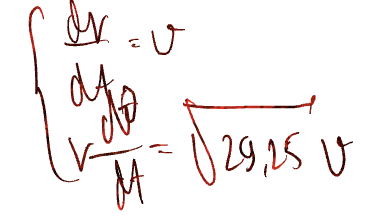 { dr/dt = v
r dθ/dt = √29,25 v